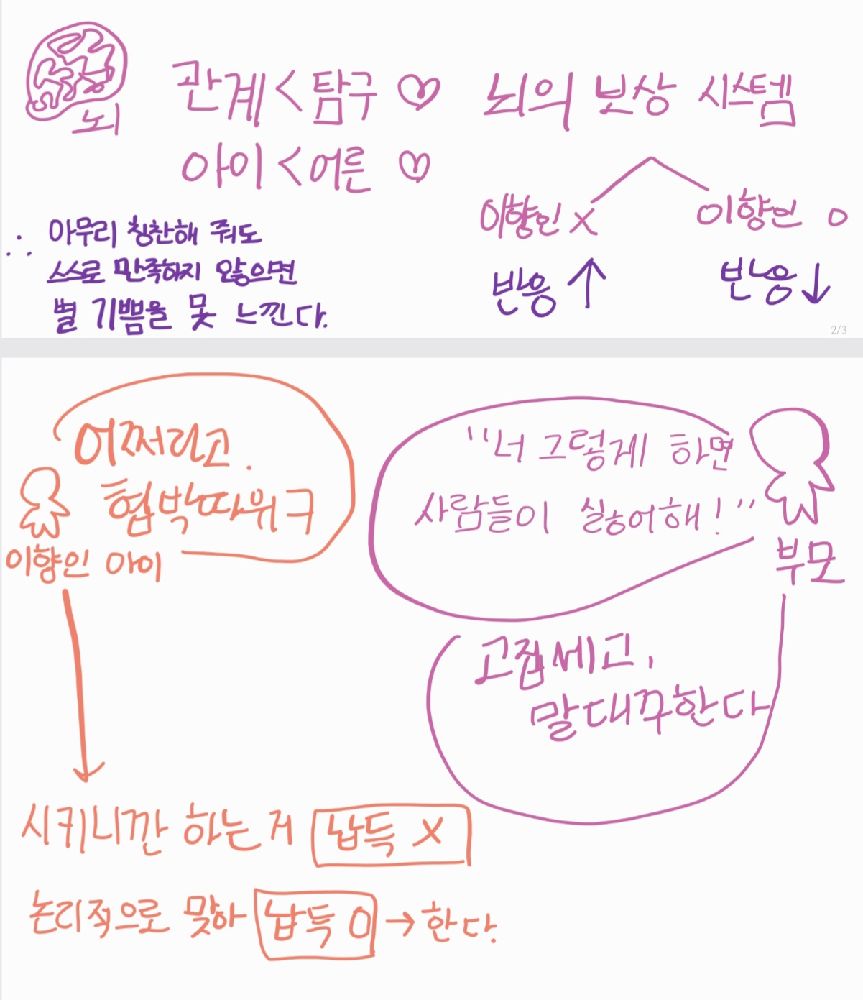 뇌
관계 < 탐구 ♡
아이 < 어른 ♡
∴ 아무리 칭찬해 줘도
스스로 만족하지 않으면
별 기쁨을 못 느낀다.
뇌의 보상 시스템
이향인 X
반응 ↑
이향인 O
반응 ↓
2/3
어쩌라고.
협박따위 ㅋ
이향인 아이
"너 그렇게 하면
사람들이 싫어해!"
부모
고집세고,
말대꾸한다
시키니깐 하는 거 납득 X
논리적으로 맞아 납득 O → 한다.